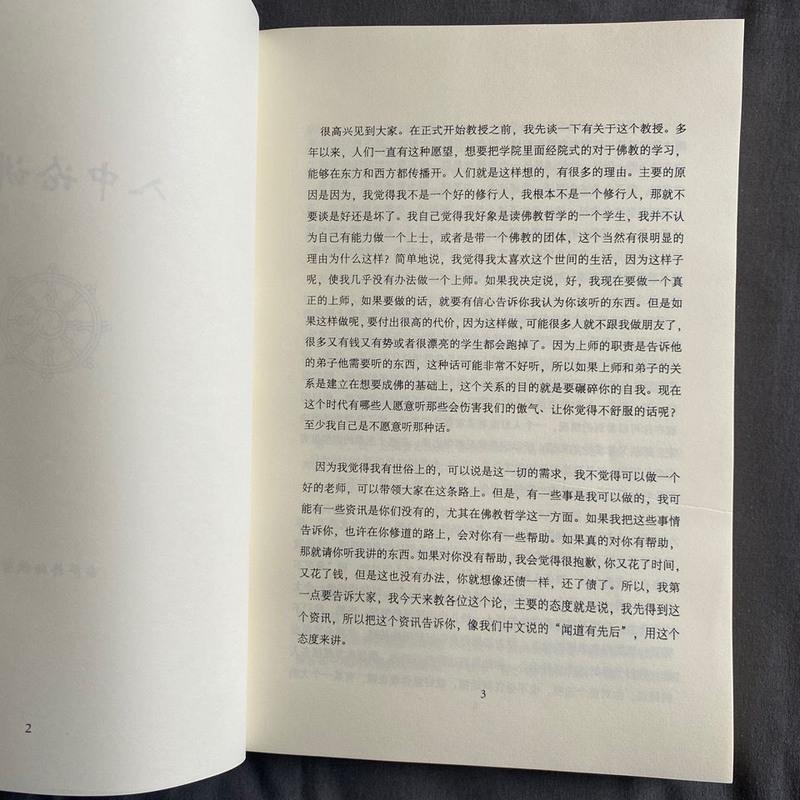 2
很高兴见到大家。在正式开始教授之前，我先谈一下有关于这个教授。多
年以来，人们一直有这种愿望，想要把学院里面经院式的对于佛教的学习，
能够在东方和西方都传播开。人们就是这样想的，有很多的理由。主要的原
因是因为，我觉得我不是一个好的修行人，我根本不是一个修行人，那就不
要谈是好还是坏了。我自己觉得我好象是读佛教哲学的一个学生，我并不认
为自己有能力做一个上士，或者是带一个佛教的团体，这个当然有很明显的
理由为什么这样？简单地说，我觉得我太喜欢这个世间的生活，因为这样子
呢，使我几乎没有办法做一个上师。如果我决定说，好，我现在要做一个真
正的上师，如果要做的话，就要有信心告诉你我认为你该听的东西。但是如
果这样做呢，要付出很高的代价，因为这样做，可能很多人就不跟我做朋友了，
很多又有钱又有势或者很漂亮的学生都会跑掉了。因为上师的职责是告诉他
的弟子他需要听的东西，这种话可能非常不好听，所以如果上师和弟子的关
系是建立在想要成佛的基础上，这个关系的目的就是要碾碎你的自我。现在
这个时代有哪些人愿意听那些会伤害我们的傲气、让你觉得不舒服的话呢？
至少我自己是不愿意听那种话。
因为我觉得我有世俗上的，可以说是这一切的需求，我不觉得可以做一个
好的老师，可以带领大家在这条路上。但是，有一些事是我可以做的，我可
能有一些资讯是你们没有的，尤其在佛教哲学这一方面。如果我把这些事情
告诉你，也许在你修道的路上，会对你有一些帮助。如果真的对你有帮助，
那就请你听我讲的东西。如果对你没有帮助，我会觉得很抱歉，你又花了时间，
又花了钱，但是这也没有办法，你就想像还债一样，还了债了。所以，我第
一点要告诉大家，我今天来教各位这个论，主要的态度就是说，我先得到这
个资讯，所以把这个资讯告诉你，像我们中文说的“闻道有先后”，用这个
态度来讲。
3